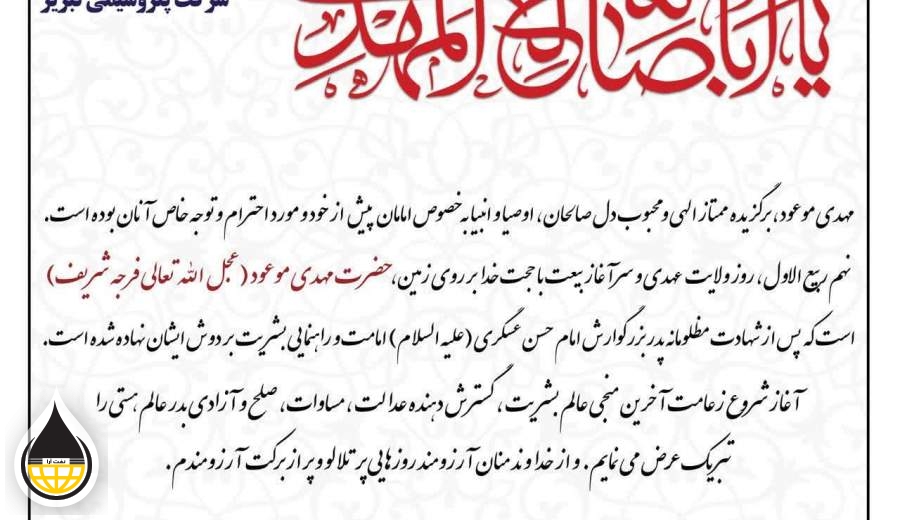 شرکت پتروشیمی تبریز
یا اباصالح المهدی
مهدی موعود، برگزیده ممتاز الهی و محبوب دل صالحان، اوصیا و انبیا به خصوص امامان پیش از خود و مورد احترام و توجه خاص آنان بوده است.
نهم ربیع الاول، روز ولایت عهدی و سرآغاز بیعت با حجت خدا بر روی زمین، حضرت مهدی موعود (عجل الله تعالی فرجه شریف)
است که پس از شهادت مظلومانه پدر بزرگوارش امام حسن عسکری (علیه السلام) امامت و راهنمایی بشریت بر دوش ایشان نهاده شده است.
آغاز شروع زعامت آخرین منجی عالم بشریت، گسترش دهنده عدالت، مساوات، صلح و آزادی بدر عالم هستی را
تبریک عرض می نمایم. و از خداوند منان آرزومند روزهایی پر تلالو و پر از برکت آرزومندم.
نفت آرا